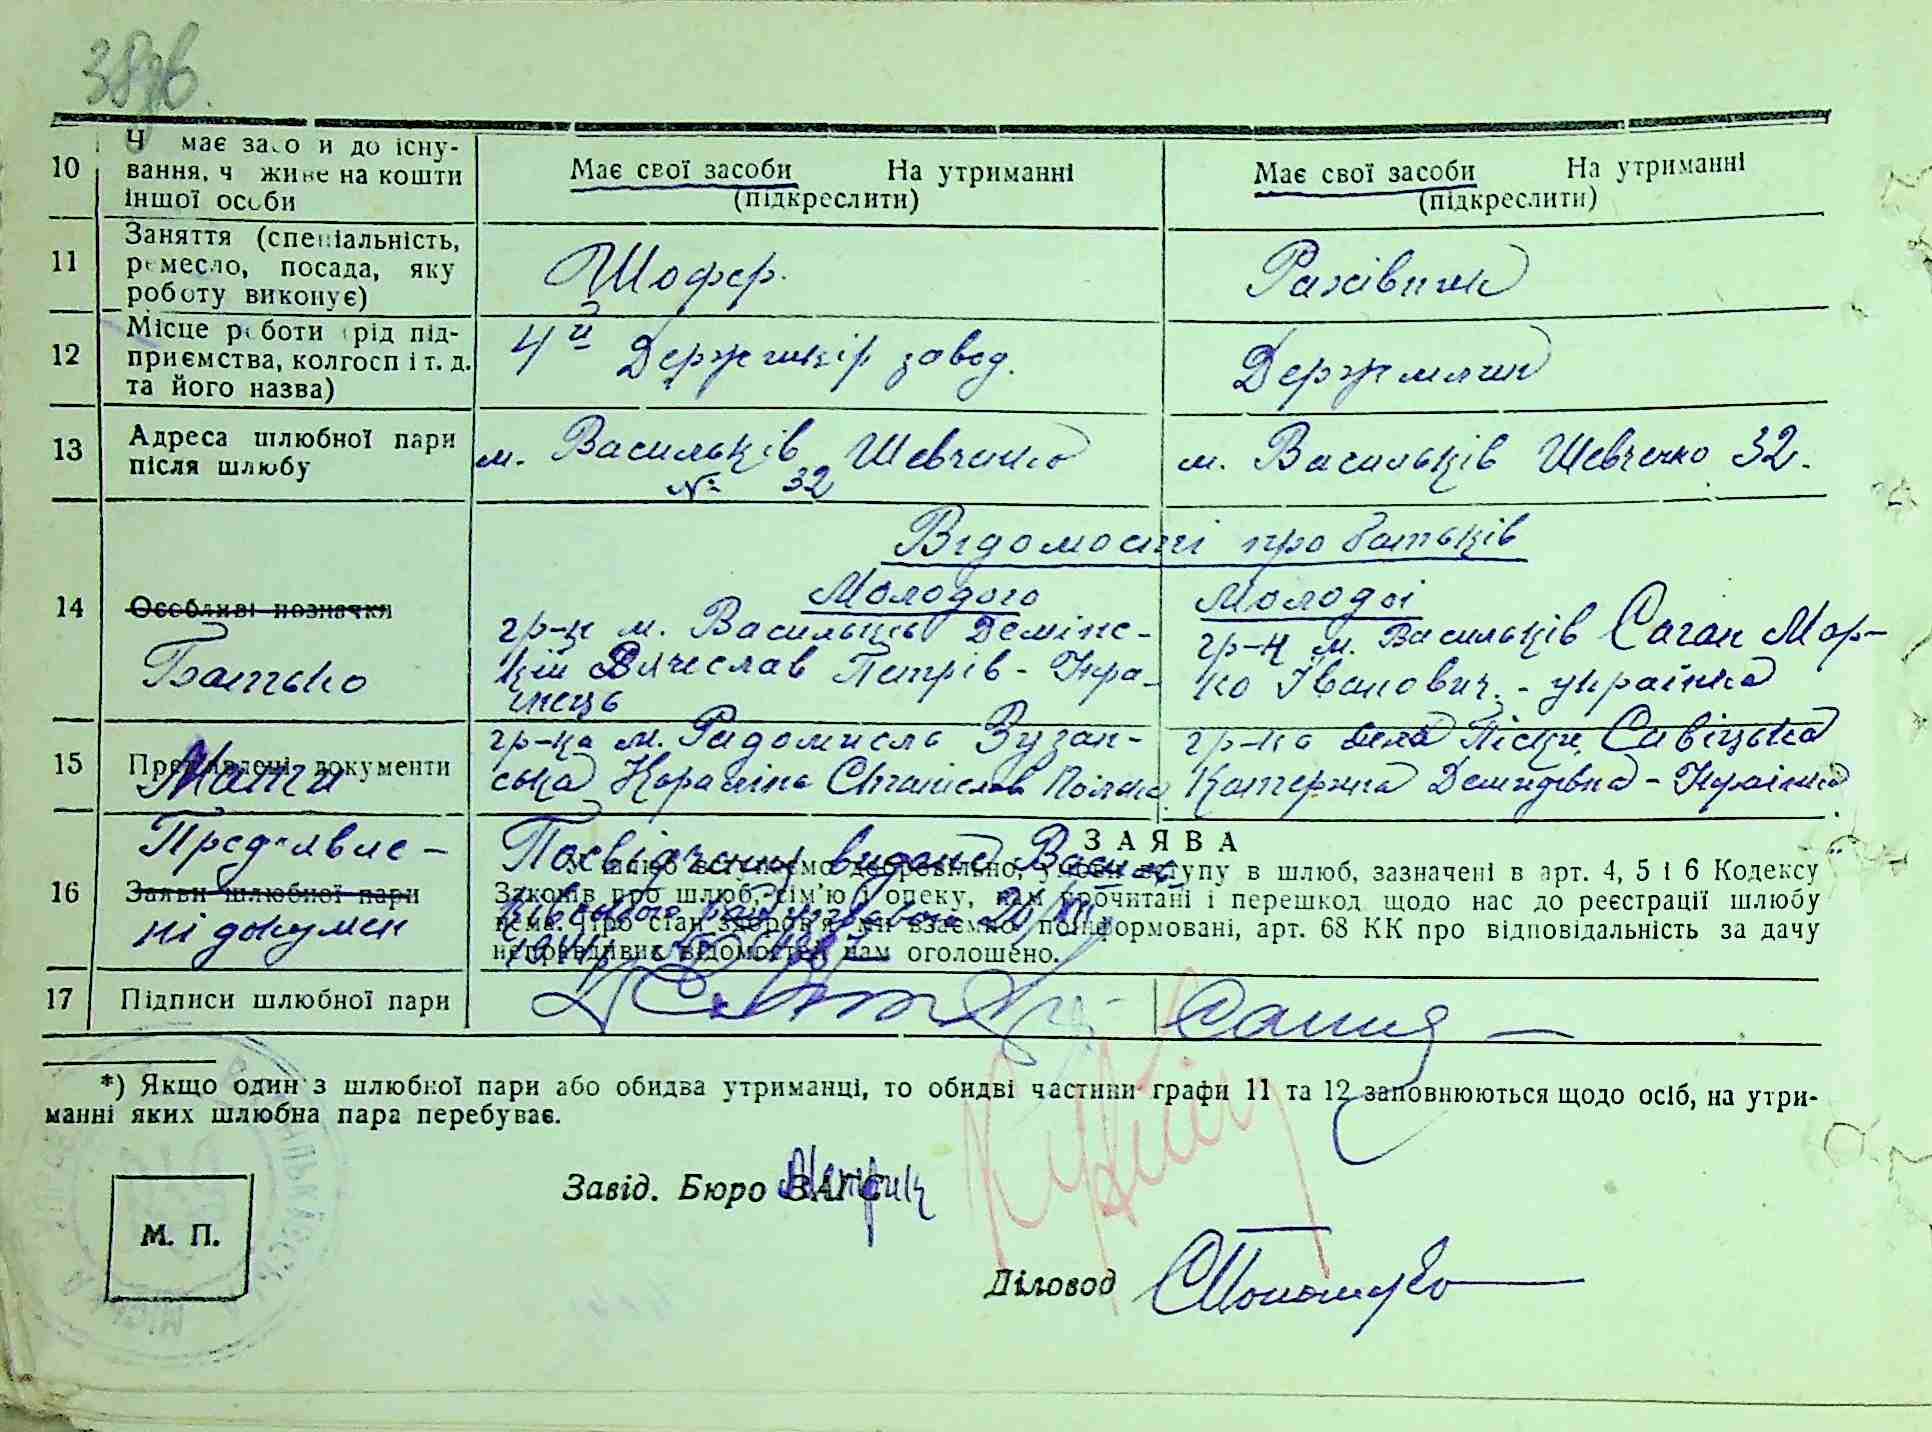 38
10
має засо и до існу-
вання, ч живе на кошти
іншої особи
Має свої засоби На утриманні
(підкреслити)
Має свої засоби На утриманні
(підкреслити)
11
Заняття (спеціальність,
ремесло, посада, яку
роботу виконує)
Шофер.
Рахівник
12
Місце роботи (рід під-
приємства, колгосп і т. д.
та його назва)
4й Держшкір завод.
Держмлин
13
Адреса шлюбної пари
після шлюбу
м. Васильків Шевченко
№ 32
м. Васильків Шевченко 32.
Відомості про батьків
14
Особливі позначки
Батько
Молодого
гр-н м. Васильків Демінс-
кій Вячеслав Петрів - Укра-
інець
Молодої
гр-н м. Васильків Саган Мар-
ко Іванович. - українка
15
Пред'явлені документи
Мати
гр-ка м. Радомисль
Кароліна Станіслав Полька
гр-ка села Піски Савіцька
Катерина Демидівна - Українка
16
Пред'явле-
Заяви шлюбної пари
ні докумен
ЗАЯВА
Посвідчення видане Василь
У шлюб вступаємо добровільно, умови вступу в шлюб, зазначені в арт. 4, 5 і 6 Кодексу
Законів про шлюб, сім'ю і опеку, нам прочитані і перешкод щодо нас до реєстрації шлюбу
нема. Про стан здоров'я ми взаємно поінформовані, арт. 68 КК про відповідальність за дачу
неправдивих відомостей нам оголошено.
17
Підписи шлюбної пари
*) Якщо один з шлюбної пари або обидва утриманці, то обидві частини графи 11 та 12 заповнюються щодо осіб, на утри-
манні яких шлюбна пара перебуває.
Завід. Бюро ЗАГС
М. П.
Діловод